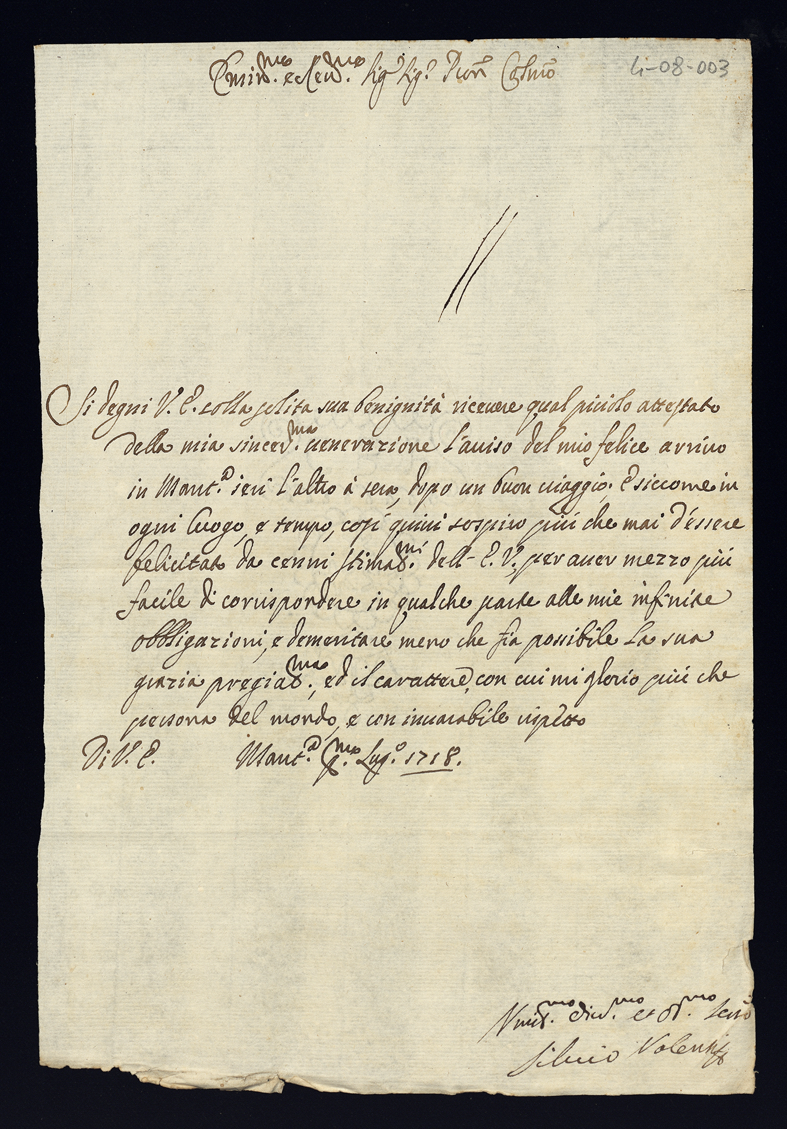 Emin.mo e Rev.mo Sig.r Sig.r Pron Colmo
4-08-003
Si degni V. E. colla solita sua benignità ricevere qual picciolo attestato
della mia sincer.ma venerazione l'aviso del mio felice arrivo
in Mant.a ieri l'altro à sera, dopo un buon viaggio; E siccome in
ogni luogo, e tempo, così quivi sospiro più che mai d'essere
felicitato da cenni stimat.mi dell' E. V., per aver mezzo più
facile di corrispondere in qualche parte alle mie infinite
obbligazioni, e demeritare meno che sia possibile la sua
grazia pregiat.ma, ed il carattere, con cui mi glorio più che
persona del mondo, e con invariabile rispetto
Di V. E. Mant.a p.mo Lug.o 1718.
Vmil.mo div.mo et obl.mo Serv
Silvio Valenti